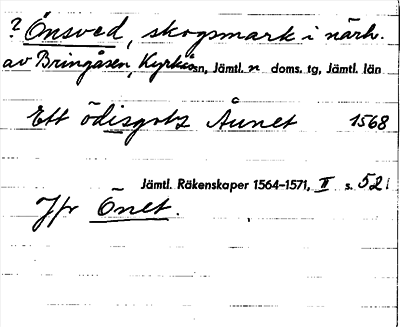 ? Önsved, skogsmark i närh.
av Bringåsen, Kyrkåssn, Jämtl. n doms. tg, Jämtl. län
Ett ödisgotz Åunet 1568
Jämtl. Räkenskaper 1564–1571, II s. 52
Jfr Önet.